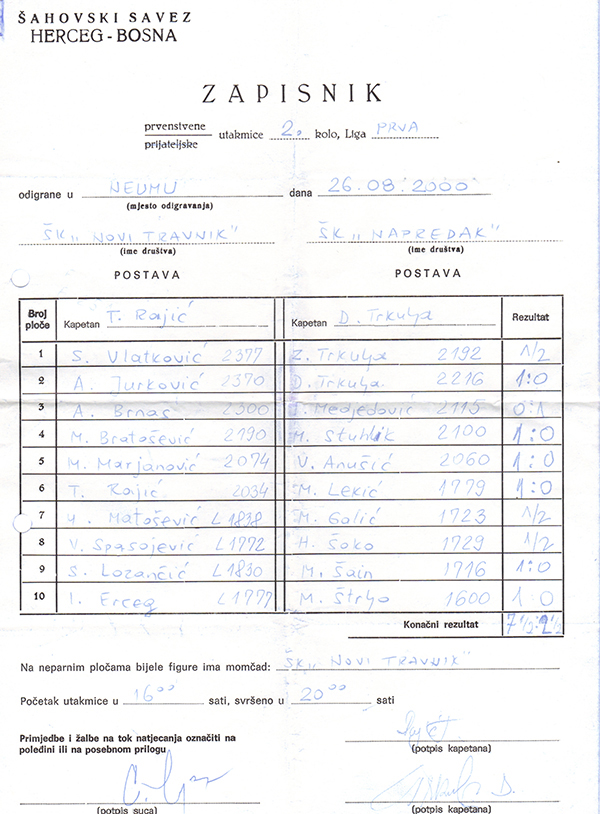 ŠAHOVSKI SAVEZ
HERCEG-BOSNA
ZAPISNIK
prvenstvene
prijateljske
utakmice 2. kolo, Liga PRVA
odigrane u NEUMU dana 26.08.2000
(mjesto odigravanja)
ŠK „NOVI TRAVNIK" ŠK „NAPREDAK"
(ime društva) (ime društva)
POSTAVA POSTAVA
Broj ploče Kapetan T. Rajić Kapetan D. Trkulja Rezultat
1 S. Vlatković 2377 Z. Trkulja 2192 1/2
2 A. Jurković 2370 D. Trkulja 2216 1:0
3 A. Brnas 2300 Medjedović 2115 0:1
4 M. Bratošević 2190 M. Stuhlik 2100 1:0
5 M. Marjanović 2074 V. Anušić 2060 1:0
6 T. Rajić 2034 M. Lekić 1779 1:0
7 Matošević L1838 M. Galić 1723 1/2
8 V. Spasojević L1772 H. Šoko 1729 1/2
9 S. Lozančić L1830 M. Šain 1716 1:0
10 I. Erceg L1777 M. Štrljo 1600 1:0
Konačni rezultat 7 1/2:2 1/2
Na neparnim pločama bijele figure ima momčad: ŠK „NOVI TRAVNIK"
Početak utakmice u 16⁰⁰ sati, svršeno u 20⁰⁰ sati
Primjedbe i žalbe na tok natjecanja označiti na
poleđini ili na posebnom prilogu
(potpis kapetana)
(potpis suca) (potpis kapetana)